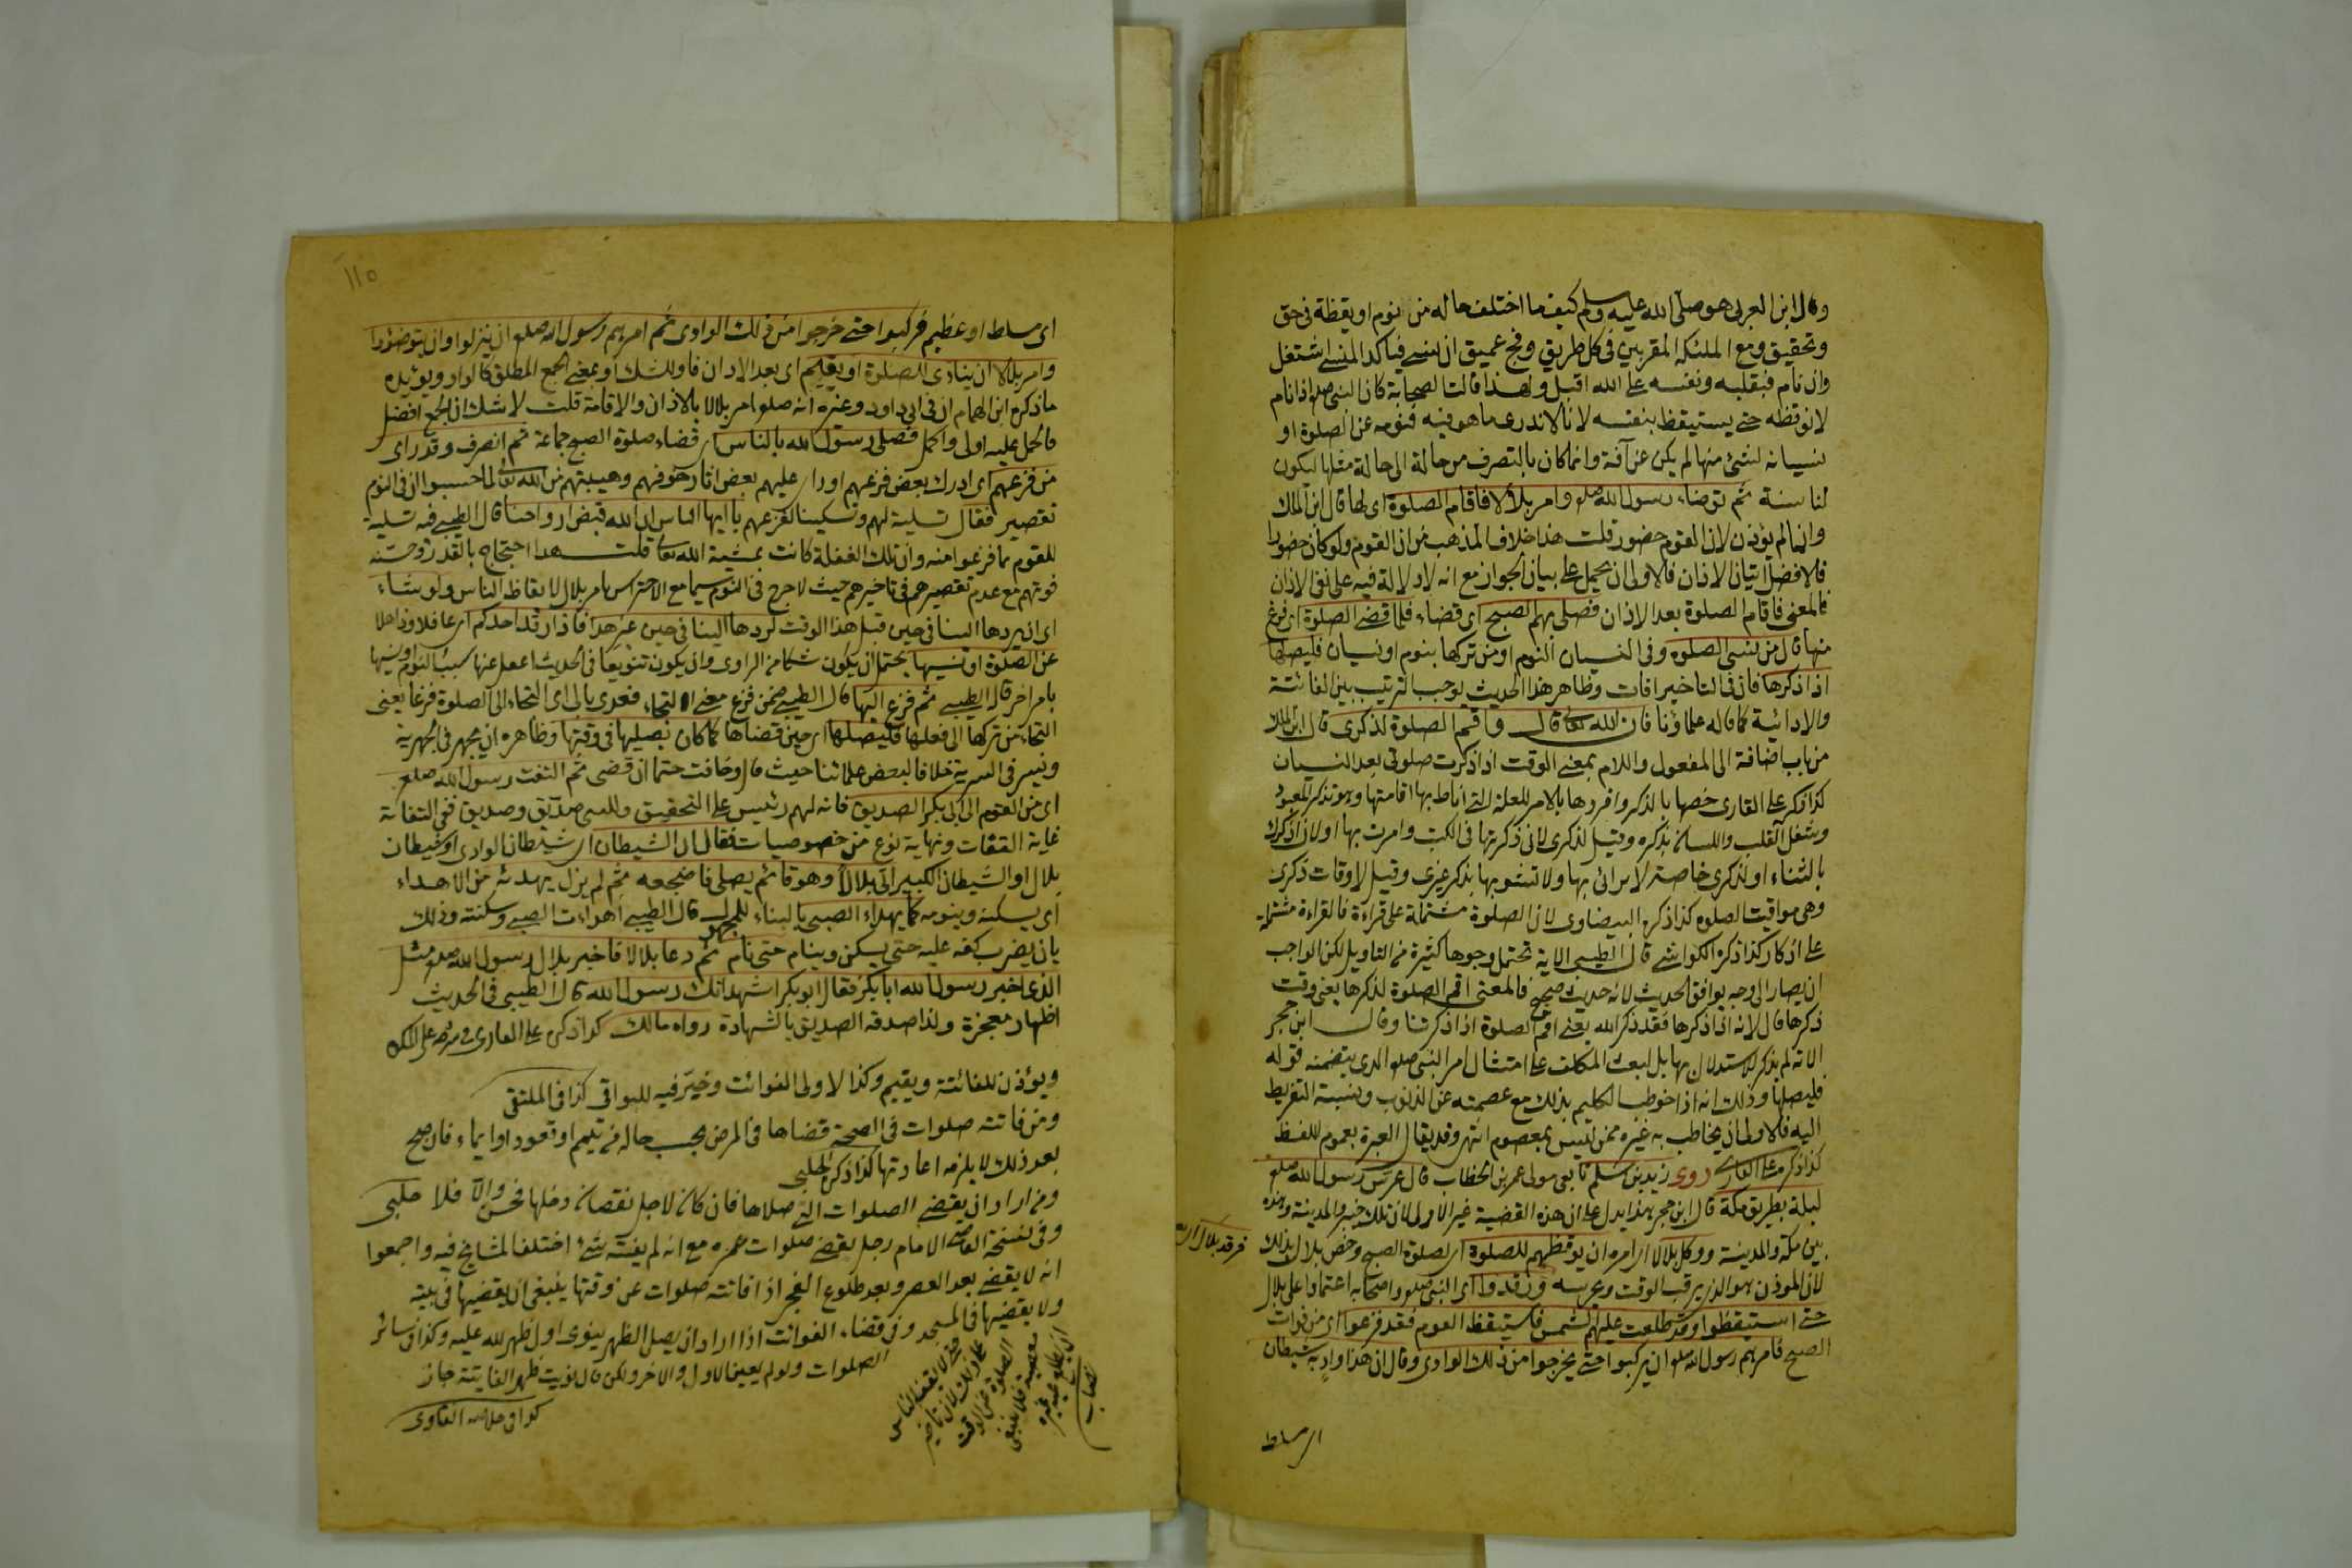 وقال ابن العربى هو صلى الله عليه وسلم كيف ما اختلف حاله من نوم او يقظة فى حق
وتحقيق ومع الملئكة المقربين فى كل طريق وفج عميق ان نسى فباكد المنسى اشتغل
وان نام فبقلبه ونفسه على الله اقبل ولهذا قالت الصحابة كان النبى صلعم اذا نام
لا نوقظه حتى يستيقظ بنفسه لانا لا ندرى ما هو فيه فنومه عن الصلوة او
نسيانه لشئ منها لم يكن عن آفة وانما كان بالتصرف من حالة الى حالة مثلها ليكون
لنا سنة ثم توضاء رسول الله صلعم وامر بلالا فاقام الصلوة اى لها قال ابن الملك
وانما لم يؤذن لان القوم حضور قلت هذا خلاف المذهب من ان القوم ولو كان حضورا
فالافضل اتيان الاذان فالاولى ان يحمل على بيان الجواز مع انه لا دلالة فيه على نفى الاذان
فالمعنى فاقام الصلوة بعد الاذان فصلى بهم الصبح اى قضاء فلما قضى الصلوة اى فرغ
منها قال من نسى الصلوة وفى النسيان النوم او من تركها بنوم او نسيان فليصلها
اذا ذكرها فان فى التاخير افات وظاهر هذا الحديث يوجب الترتيب بين الفائتة
والادائية كما قاله علماؤنا فان الله تعالى قال واقم الصلوة لذكرى قال ابن الملك
من باب اضافة الى المفعول واللام بمعنى الوقت اذا ذكرت صلوتى بعد النسيان
كذا ذكر على القارى خصها بالذكر وافردها بالامر للعلة التى اناط بها اقامتها وهو تذكر المعبود
وشغل القلب واللسان بذكره وقيل لذكرى لانى ذكرتها فى الكتب وامرت بها او لان اذكرك
بالثناء او لذكرى خاصة لا ترائى بها ولا تشوبها بذكر غيرى وقيل لاوقات ذكرى
وهى مواقيت الصلوة كذا ذكره البيضاوى لان الصلوة مشتملة على قراءة فالقراءة مشتملة
على اذكار كذا ذكره الكواشى قال الطيبى الاية تحتمل وجوها كثيرة من التاويل لكن الواجب
ان يصار الى وجه يوافق الحديث لانه حديث صحيح فالمعنى اقم الصلوة لذكرها يعنى وقت
ذكرها قال لانه اذا ذكرها فقد ذكر الله يعنى اقم الصلوة اذا ذكرتنا وقال ابن حجر
الاية لم يذكر للاستدلال بها بل لبعث المكلف على امتثال امر النبى صلعم الذى يتضمنه قوله
فليصلها وذلك انه اذا خوطب الكليم بذلك مع عصمته عن الذنوب ونسبة التفريط
اليه فالاولى ان يخاطب به غيره ممن ليس بمعصوم انتهى وقد يقال العبرة بعموم اللفظ
كذا ذكره على القارى روى زيد بن اسلم تابعى مولى عمر بن الخطاب قال عرس رسول الله صلعم
ليلة بطريق مكة قال ابن حجر بهذا يدل على ان هذه القضية غير الاولى لان تلك خيبر والمدينة وهذه
بين مكة والمدينة ووكل بلالا اى امره ان يوقظهم للصلوة اى لصلوة الصبح وخص بلال بذلك
فرقد بلال
لان الموذن هو الذى يرقب الوقت ويحرسه ورقدوا اى النبى صلعم واصحابه اعتمادا على بلال
حتى استيقظوا وقد طلعت عليهم الشمس فاستيقظ القوم فقد فزعوا اى من فوات
الصبح فامرهم رسول الله صلعم ان يركبوا حتى يخرجوا من ذلك الوادى وقال ان هذا واد به شيطان
اى مسلط
١١٥
اى مسلط او عظيم فركبوا حتى خرجوا من ذلك الوادى ثم امرهم رسول الله صلعم ان ينزلوا وان يتوضؤا
وامر بلالا ان ينادى للصلوة او يقيم اى بعد الاذان فاو للشك او بمعنى الجمع المطلق كالواو ويؤيده
ما ذكره ابن الهمام ان فى ابى داود وغيره انه صلعم امر بلالا بالاذان والاقامة قلت لا شك ان الجمع افضل
فالحمل عليه اولى واكمل فصلى رسول الله بالناس اى قضاء صلوة الصبح جماعة ثم انصرف وقد راى
من فزعهم اى ادرك بعض فزعهم او راى عليهم بعض اثار خوفهم وهيبتهم من الله تعالى لما حسبوا ان فى النوم
تقصير فقال تسلية لهم وتسكينا لفزعهم يا ايها الناس ان الله قبض ارواحنا قال الطيبى فيه تسلية
للقوم مما فزعوا منه وان تلك الغفلة كانت بمشية الله تعالى قلت هذا احتجاج بالقدر وحسنه
فوتهم مع عدم تقصيرهم فى تاخيرهم حيث لا حرج فى النوم سيما مع الاحتراس بامر بلال لايقاظ الناس ولو شاء
اى ان يردها الينا فى حين قبل هذا الوقت لردها الينا فى حين غير هذا فاذا رقد احدكم اى غافلا وذاهلا
عن الصلوة او نسيها يحتمل ان يكون شكا من الراوى وان يكون تنويعا فى الحديث اى غفل عنها بسبب النوم او نسيها
بامر اخر قاله الطيبى ثم فزع اليها قال الطيبى ضمن فزع معنى التجاء فعدى بالى اى التجاء الى الصلوة فزعا يعنى
التجاء من تركها الى فعلها فليصلها اى حين قضاها كما كان يصليها فى وقتها وظاهره ان يجهر فى الجهرية
ويسر فى السرية خلافا لبعض علمائنا حيث قال وخافت حتما ان قضى ثم التفت رسول الله صلعم
اى من القوم الى ابى بكر الصديق فانه لهم رئيس على التحقيق وللنبى صديق وصديق ففى التفاتة
غاية التفات ونهاية نوع من خصوصيات فقال ان الشيطان اى شيطان الوادى او شيطان
بلال او الشيطان الكبير اتى بلالا وهو قائم يصلى فاضجعه ثم لم يزل يهدئه من الاهداء
اى يسكنه وينومه كما يهداء الصبى بالبناء للمجهول قال الطيبى اهداءت الصبى وسكنته وذلك
بان يضرب كفه عليه حتى يسكن وينام حتى نام ثم دعا بلالا فاخبر بلال رسول الله صلعم مثل
الذى اخبر رسول الله ابا بكر فقال ابو بكر اشهد انك رسول الله قال الطيبى فى الحديث
اظهار معجزة ولذا صدقه الصديق بالشهادة رواه مالك كذا ذكره على القارى
ويؤذن للفائتة ويقيم وكذا لاولى الفوائت وخير فيه للبواقى كذا فى الملتقى
ومن فاتته صلوات فى الصحة قضاها فى المرض بحسب حاله من تيمم او قعود او ايماء فان صح
بعد ذلك لا يلزمه اعادتها كذا ذكره الحلبى
ومن اراد ان يقضى الصلوات التى صلاها فان كان لاجل نقصان دخلها فحسن والا فلا حلبى
وفى نسخة القاضى الامام رجل يقضى صلوات عمره مع انه لم يفته شئ اختلف المشايخ فيه واجمعوا
انه لا يقضى بعد العصر وبعد طلوع الفجر اذا فاتته صلوات عن وقتها ينبغى ان يقضيها فى بيته
ولا يقضيها فى المسجد وفى قضاء الفوائت اذا اراد ان يصل الظهر ينوى اول ظهر لله عليه وكذا فى سائر
الصلوات ولو لم يعين الاول والاخر ولكن قال نويت ظهر الفائتة جاز
كذا فى خلاصة الفتاوى
الصلوة عن الوقت
معصية فلا ينبغى
ان يطلع عليه غيره
نصاب